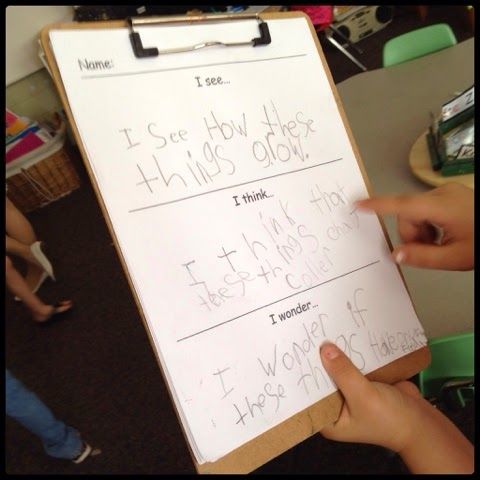 Name:
I see...
I See How these
things grow.
I think...
I think that
these things
coler
I wonder...
I wonder if
these things Have